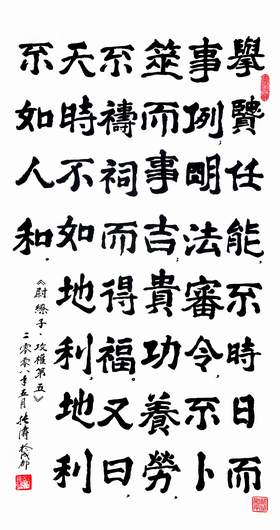 舉賢任能,不時日而
事例,明法審令,不卜
筮而事吉,貴功養勞,
不禱祠而得福。又曰,
天時不如地利,地利
不如人和。
《尉繚子·攻權第五》
二零零八年五月 於成都